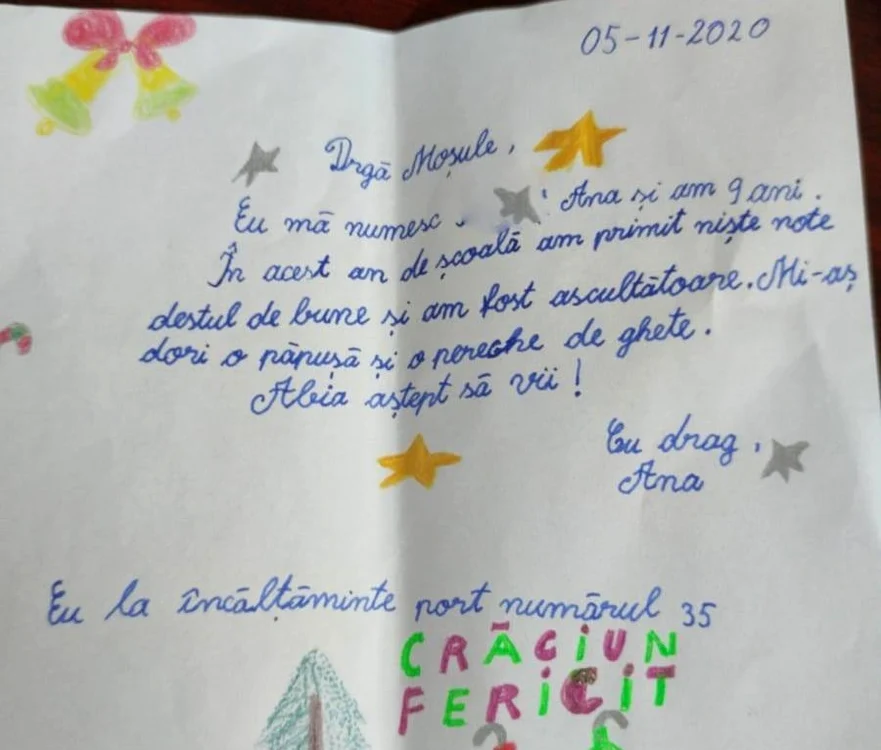 05-11-2020
Drgă Moșule,
Eu mă numesc Ana și am 9 ani.
În acest an de școală am primit niște note
destul de bune și am fost ascultătoare. Mi-aș
dori o păpușă și o pereche de ghete.
Abia aștept să vii!
Cu drag,
Ana
Eu la încălțăminte port numărul 35
CRĂCIUN
FERICIT